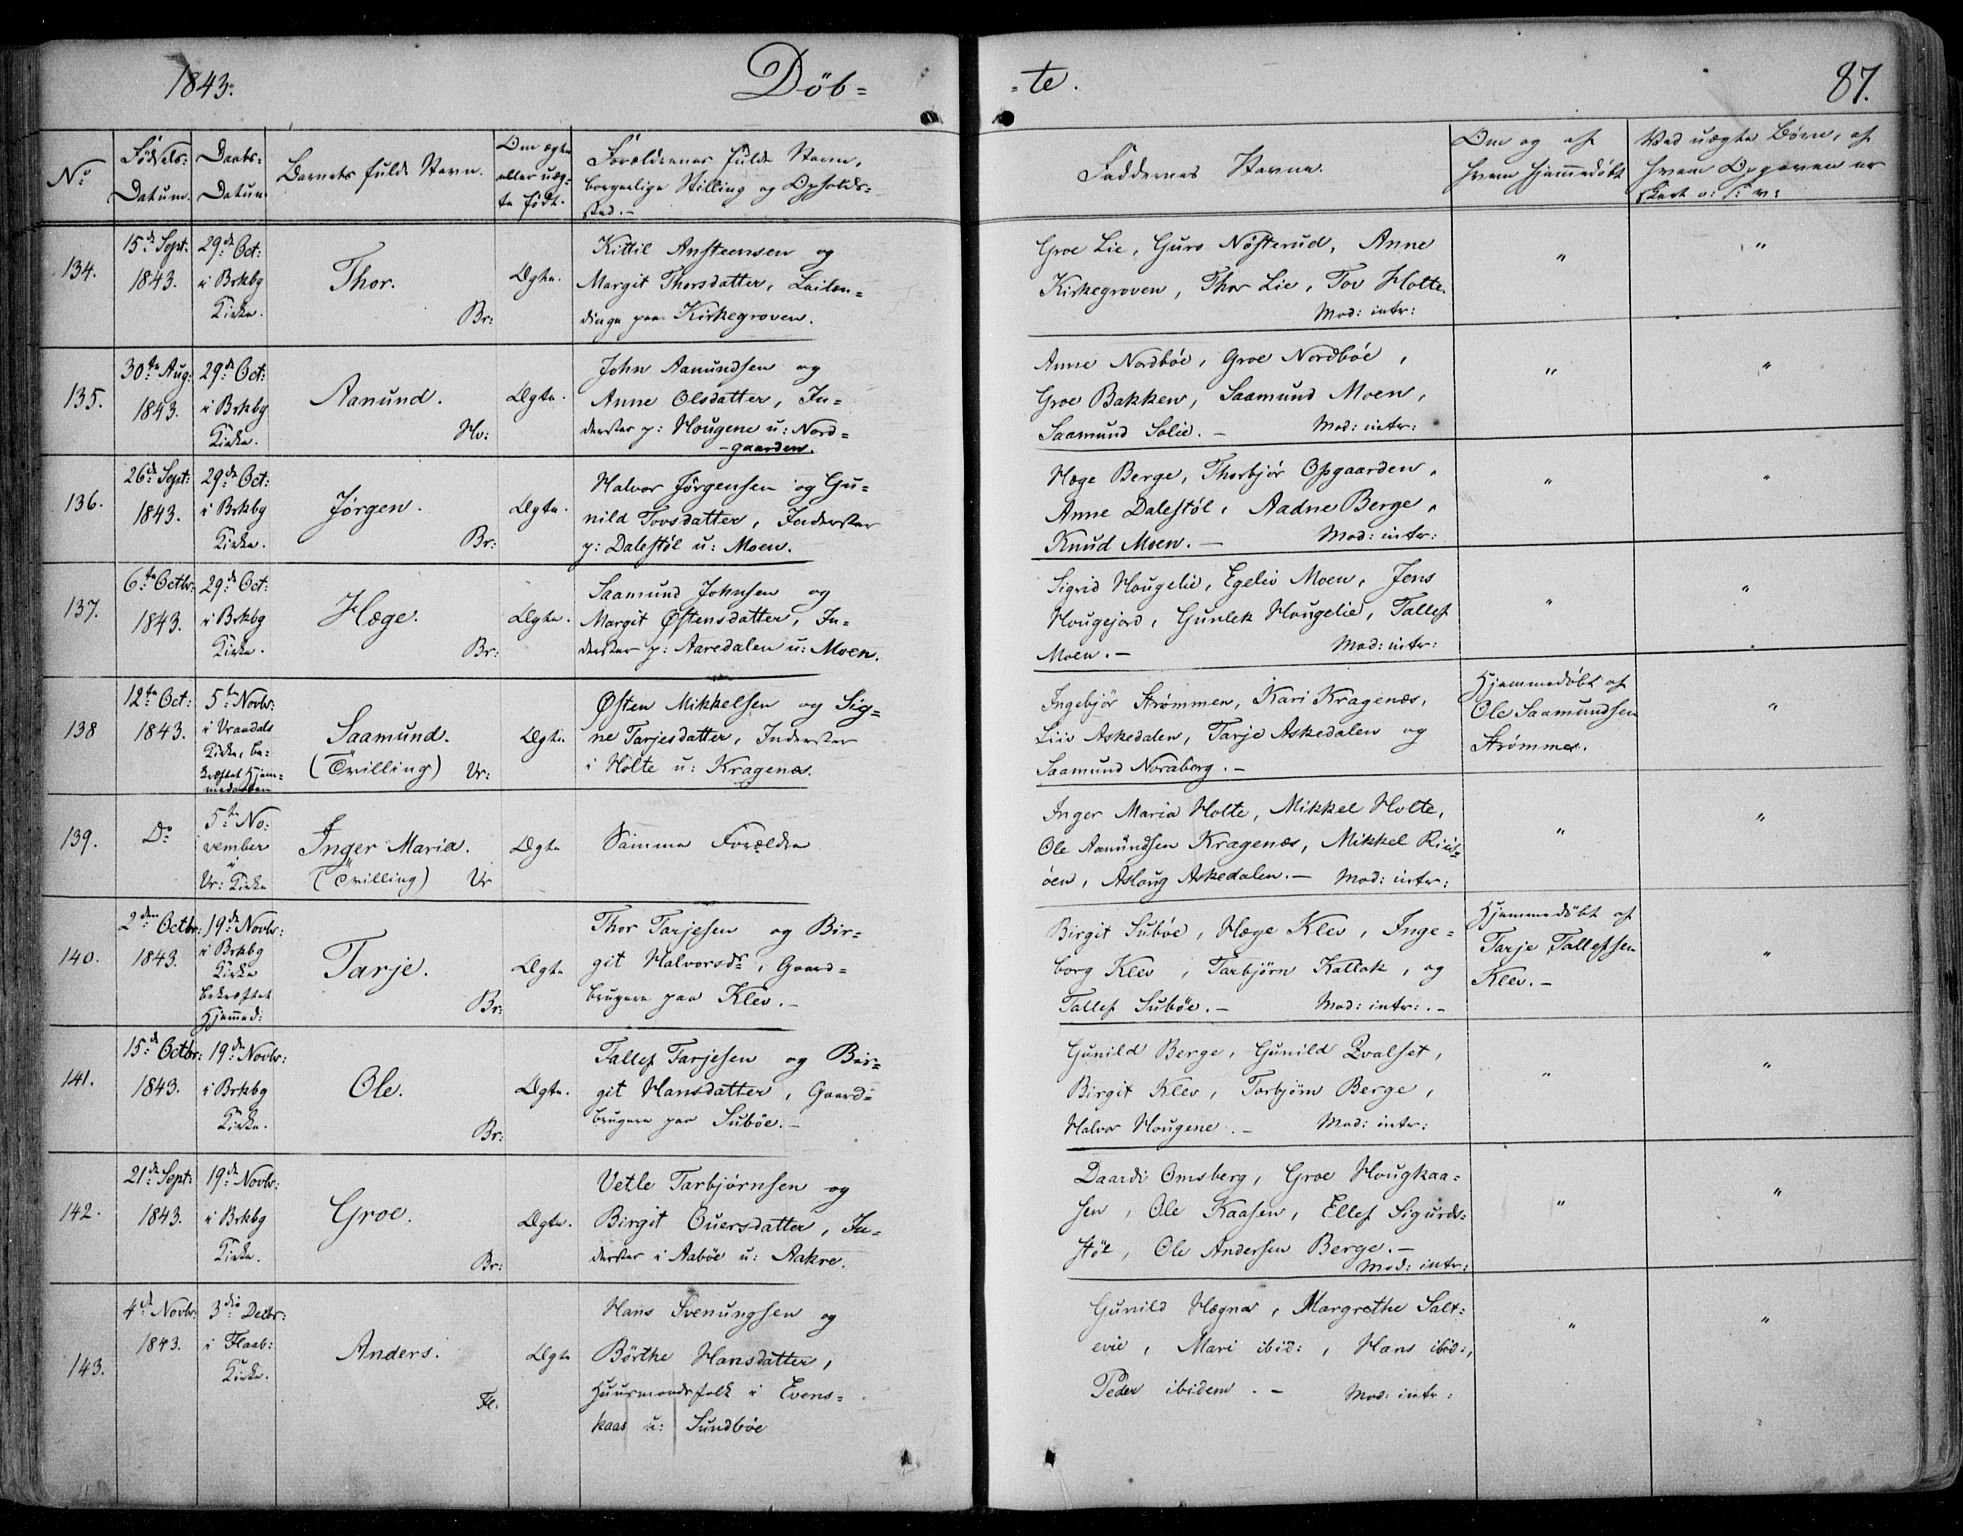 1843. Döb= -te. 87.
No
Fødsels- Datum.
Daabs- Datum
Barnets fulde Navn.
Om ægte eller uæg- te født.
Forældrenes fulde Navn, borgerlige Stilling og Opholds- sted.-
Faddernes Navne.
Om og af hvem hjemmedøbt
Ved uægte Børn, af hvem Opgaven er skeet o: s: v:
134.
15de Sept: 1843.
29de Oct: i Brkbg Kirke.
Thor. Br:
Ægte.
Kittil Ansteensen og
Margit Thorsdatter, Leilen=
dinge paa Kirkegroven.
Groe Lie, Guro Nøsterud, Anne
Kirkegroven, Thor Lie, Tov Holte.
Mod: intr:
" "
135.
30te Aug: 1843.
29de Oct: i Brkbg Kirke.
Aanund. Hv:
Ægte.
John Aanundsen og
Anne Olsdatter, In=
derster p: Hougene u: Nord=
-gaarden.
Anne Nordbøe, Groe Nordbøe,
Groe Bakken, Saamund Moen,
Saamund Solie. - Mod: intr:
" "
136.
26de Sept: 1843.
29de Oct: i Brkbg Kirke.
Jørgen. Br:
Ægte.
Halvor Jørgensen og Gu=
nild Tovsdatter, Inderster
p: Dalestöl u: Moen.
Hæge Berge, Thorbjör Opgaarden,
Anne Dalestöl, Aadne Berge,
Knud Moen. - Mod: intr:
" "
137.
6te Octbr: 1843.
29de Oct: i Brkbg Kirke.
Hæge. Br:
Ægte.
Saamund Johnsen og
Margit Østensdatter, In=
derster p: Aaredalen u: Moen.
Sigrid Hougelie, Egeliv Moen, Jens
Hougejord, Gunlek Hougelie, Tallef
Moen. - Mod: intr:
" "
138
12te Oct: 1843.
5te Novbr: i Vraadals Kirke, be- kræftet Hjem- medaaben
Saamund. (Tvilling) Vr:
Ægte.
Østen Mikkelsen og Sig=
ne Tarjesdatter, Inderster
i Holte u: Kragenæs.
Ingebjör Strømmen, Kari Kragenæs,
Liv Askedalen, Tarje Askedalen og
Saamund Noraberg. -
Hjemmedøbt af
Ole Saamundsen
Strømmen.
"
139.
Do
5te No: vember i Vr: Kirke
Inger Maria. (Tvilling) Vr
Ægte
Samme Forældre
Inger Maria Holte, Mikkel Holte,
Ole Aanundsen Kragenæs, Mikkel
öen, Aslaug Askedalen. - Mod: intr:
" "
140.
2den Octbr: 1843.
19de Novbr: i Brkbg Kirke bekræftet Hjemmed:
Tarje. Br:
Ægte
Thor Tarjesen og Bir=
git Halvorsdr, Gaard=
brugere paa Klev. -
Birgit Subøe, Hæge Klev, Inge=
borg Klev, Tarbjørn Kallak, og
Tallef Subøe. - Mod: intr:. -
Hjemmedøbt af
Tarje Tallefsen
Klev. -
"
141.
15de Octbr: 1843.
19de Novbr: i Brkbg Kirke.
Ole. Br:
Ægte.
Tallef Tarjesen og Bir=
git Hansdatter, Gaard=
brugere paa Subøe. -
Gunild Berge, Gunild Qvalset,
Birgit Klev, Torbjørn Berge,
Halvor Hougene. - Mod: intr:
" "
142.
21de Sept: 1843.
19de Novbr: i Brkbg Kirke.
Groe. Br:
Ægte.
Vetle Tarbjørnsen og
Birgit Ouersdatter, In=
derster i Aabøe u: Aakre.
Daardi Omsberg, Groe Hougkaa=
sen, Ole Kaasen, Ellef Sigurds=
støl, Ole Andersen Berge. -
Mod: intr:
" "
143.
4de Novbr: 1843.
3die Decbr: i Flaab: Kirke.
Anders. Fl:
Ægte
Hans Svenungsen og
Börthe Hansdatter,
Huusmandsfolk i Evens=
kaas u: Sundbøe
Gunild Hægna, Margrethe Salt=
evie, Mari ibid:, Hans ibid:,
Peder ibidem. - Mod: intr:
" "